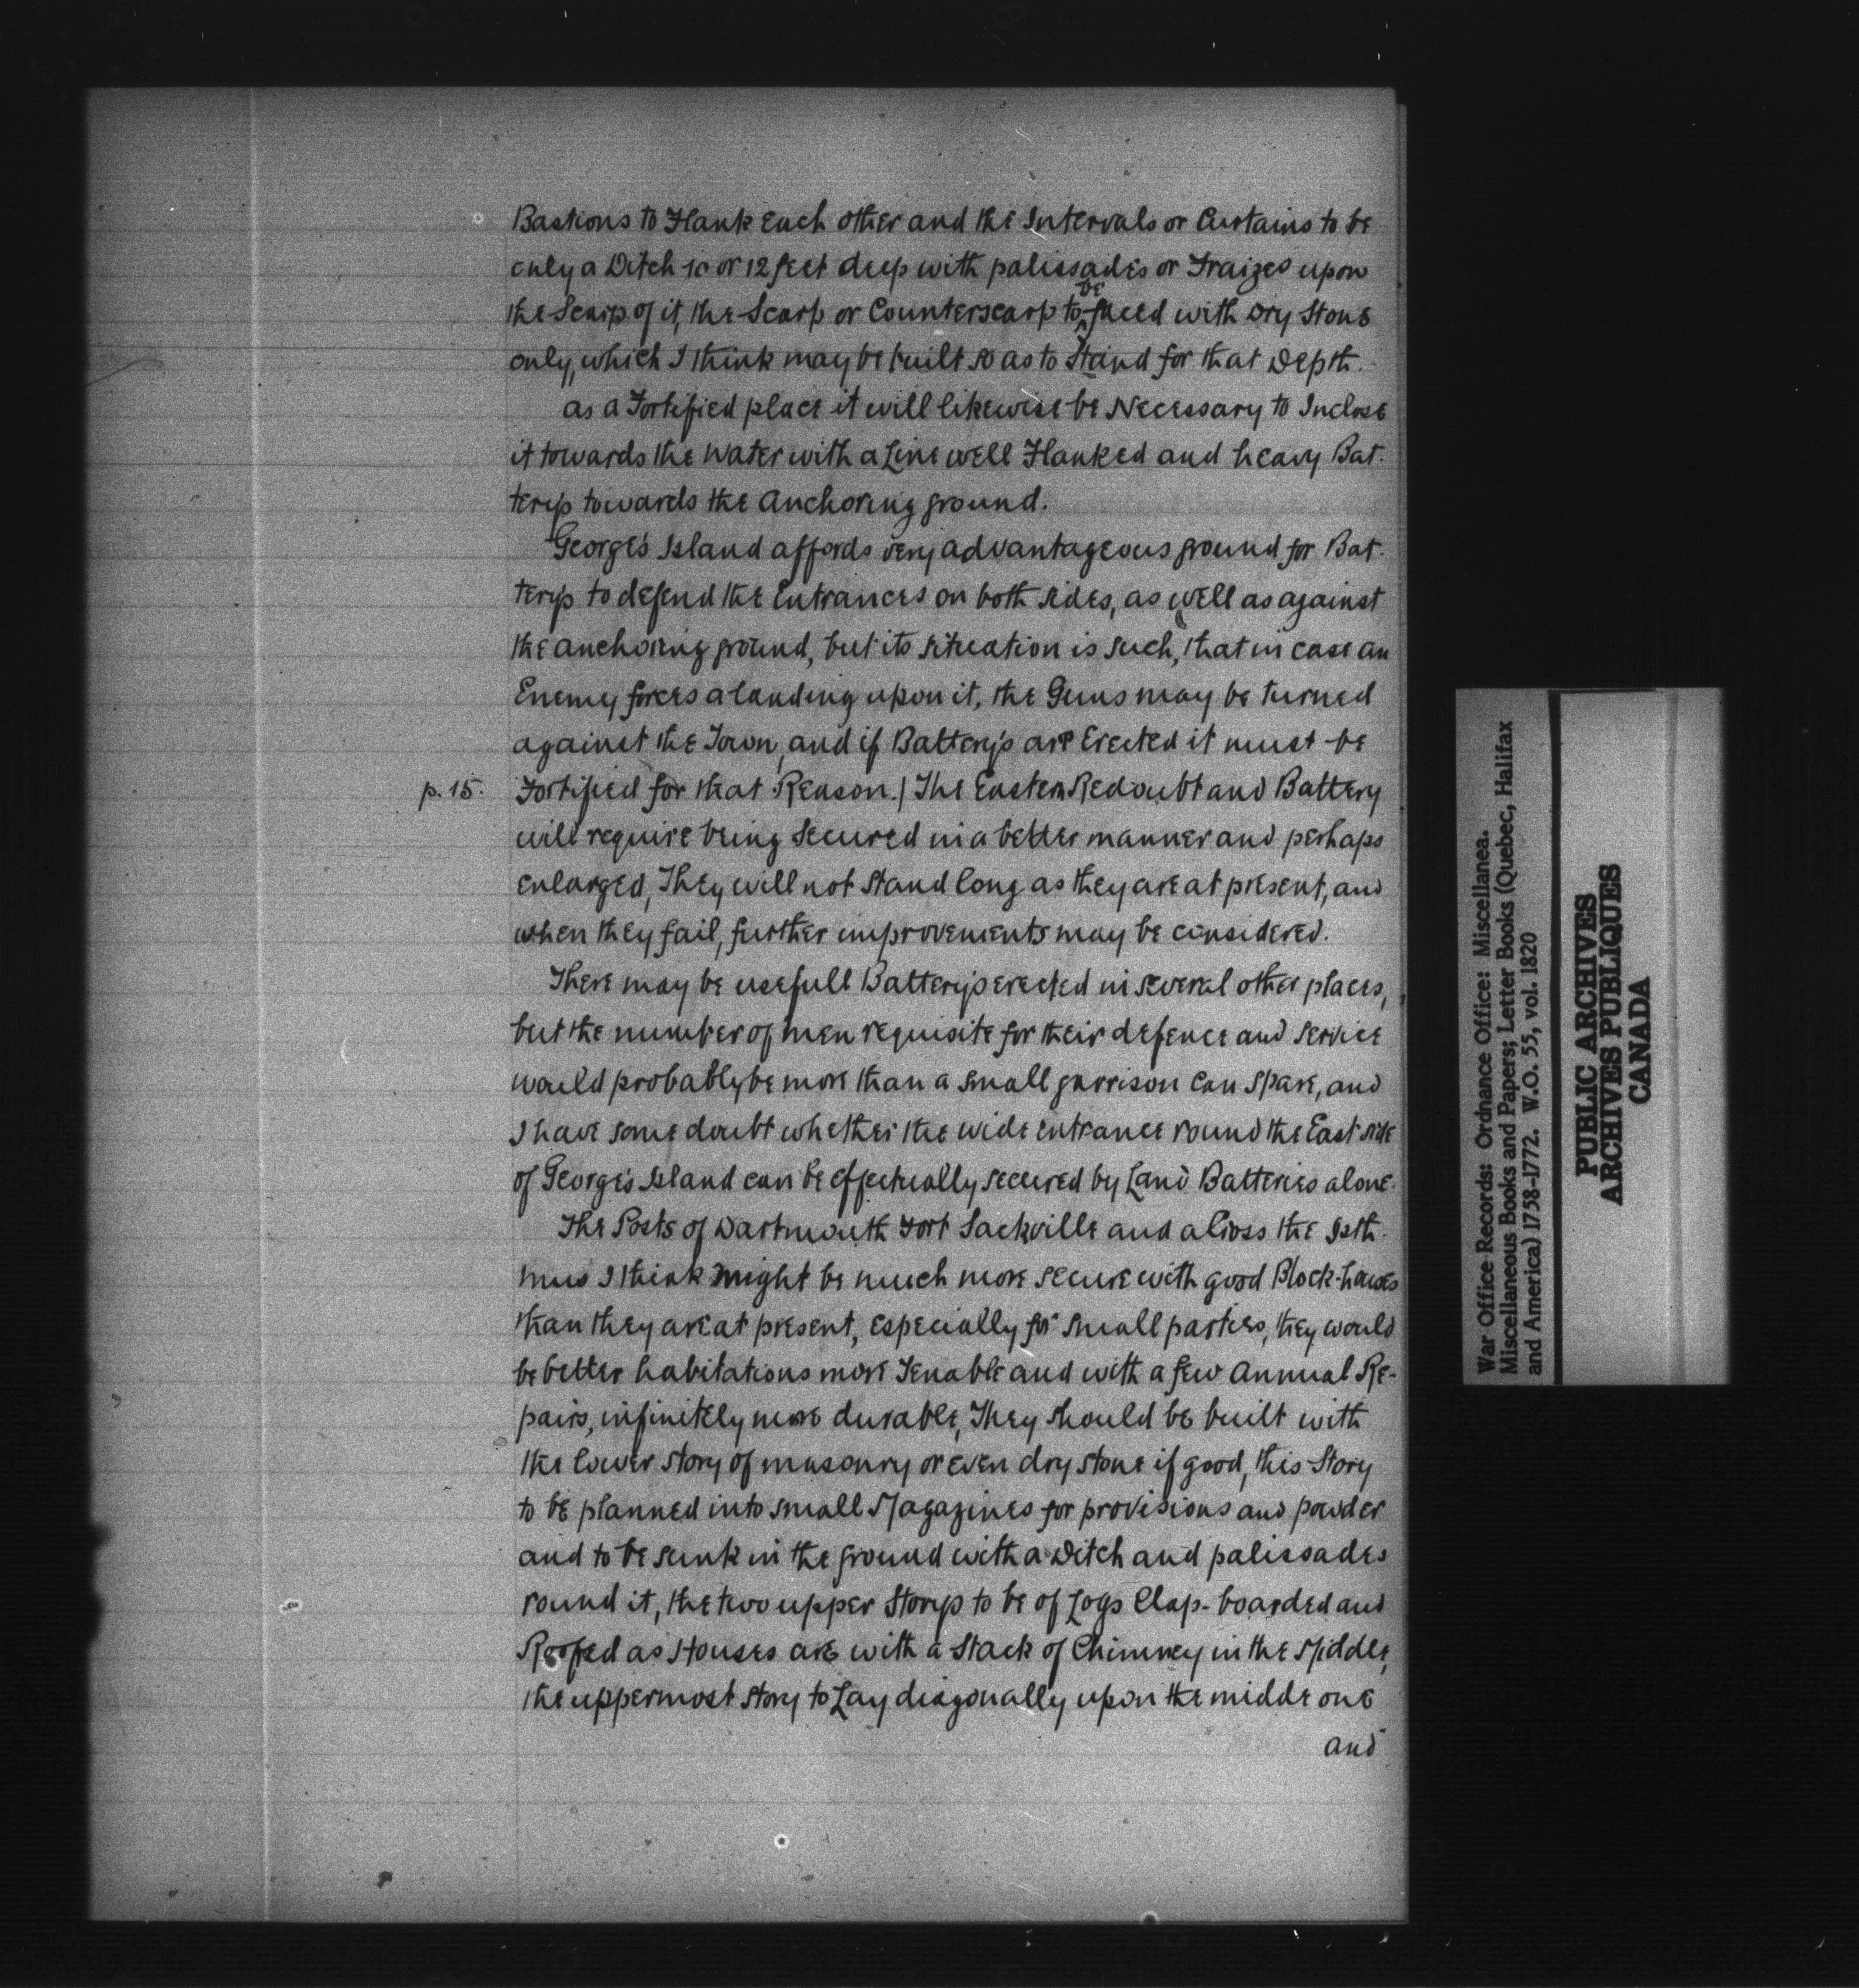 Bastions to Flank Each other and the Intervals or Curtains to be
only a Ditch 10 or 12 feet deep with palissades or Fraizes upon
the Scarp of it, the Scarp or Counterscarp to be faced with Dry Stone
only, which I think may be built so as to Stand for that Depth.
as a Fortified place it will likewise be Necessary to Inclose
it towards the Water with a Line well Flanked and heavy Bat-
terys towards the anchoring ground.
George's Island affords very advantageous ground for Bat-
terys to defend the Entrances on both sides, as well as against
the anchoring ground, but its situation is such, that in case an
Enemy forces a landing upon it, the Guns may be turned
against the Town, and if Batterys are Erected it must be
p. 15. Fortified for that Reason. / The Eastern Redoubt and Battery
will require being Secured in a better manner and perhaps
enlarged, They will not Stand long as they are at present, and
when they fail, further improvements may be considered.
There may be usefull Batterys erected in several other places,
but the number of men requisite for their defence and service
would probably be more than a small garrison can spare, and
I have some doubt whether the wide entrance round the East side
of George's Island can be effectually secured by Land Batteries alone.
The Posts of Dartmouth Fort Sackville and across the Isth-
mus I think might be much more secure with good Block-houses
than they are at present, especially for small parties, they would
be better habitations more Tenable and with a few Annual Re-
pairs, infinitely more durable, They should be built with
the lower story of masonry or even dry stone if good, this Story
to be planned into small Magazines for provisions and powder
and to be sunk in the ground with a Ditch and palissades
round it, the two upper Storys to be of Logs Clap-boarded and
Roofed as Houses are with a Stack of Chimney in the Middle,
the uppermost story to Lay diagonally upon the middle one
and
War Office Records: Ordnance Office: Miscellanea.
Miscellaneous Books and Papers; Letter Books (Quebec, Halifax
and America) 1758-1772. W.O. 55, vol. 1820
PUBLIC ARCHIVES
ARCHIVES PUBLIQUES
CANADA